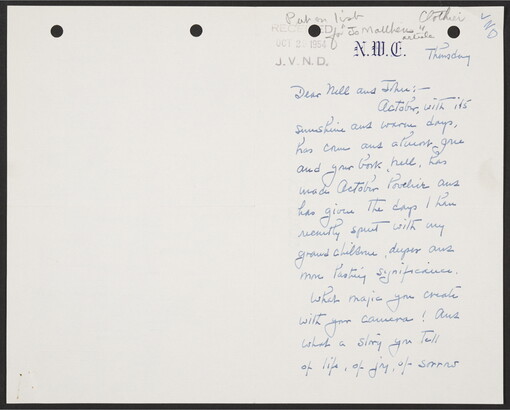 Put on list
Clothier
for "Jo Matthews"
article
VND
RECEIVED
OCT 2 - 1954
J. V. N. D.
N.W.C.
Thursday
Dear Nell and John:-
October, with its
sunshine and warm days,
has come and almost gone
and your book, Nell, has
made October lovelier and
has given the days I have
recently spent with my
grandchildren, deeper and
more lasting significance.
What magic you create
with your camera! And
what a story you tell
of life, of joy, of sorrow